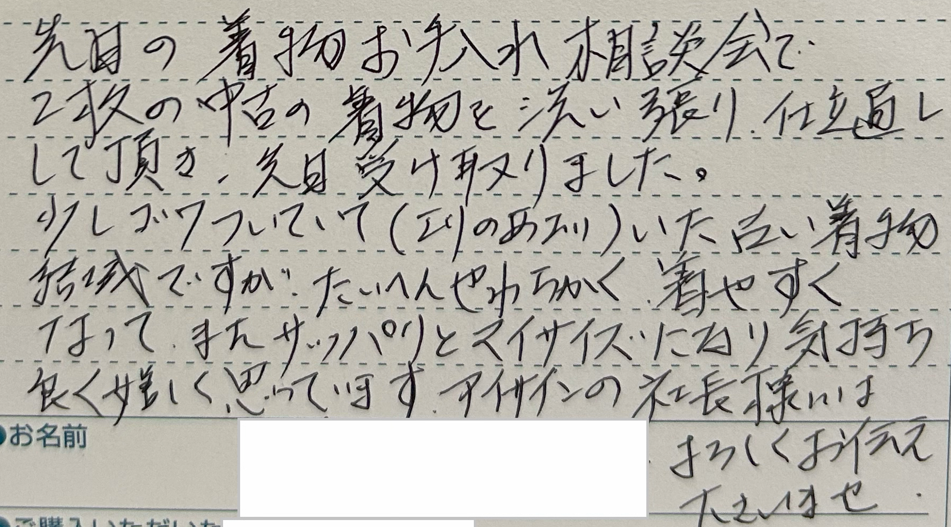 先日の着物お手入れ相談会で
2枚の中古の着物を洗い張り、仕立直し
して頂き、先日受け取りました。
少しゴワついていて(エリのあたり)いた古い着物
結城ですが、たいへんやわらかく、着やすく
なって、またサッパリとマイサイズになり気持ち
良く嬉しく思っています。アイサインの社長様には
よろしくお伝え
下さいませ。
●お名前
●ご購入いただいた